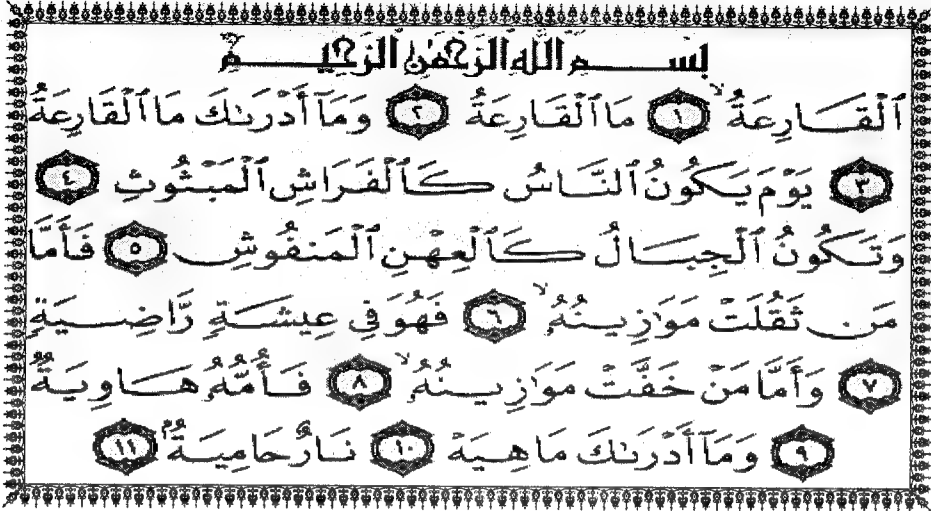 بِسْمِ اللَّهِ الرَّحْمَٰنِ الرَّحِيمِ
ٱلْقَارِعَةُ ۙ ١ مَا ٱلْقَارِعَةُ ٢ وَمَآ أَدْرَىٰكَ مَا ٱلْقَارِعَةُ
٣ يَوْمَ يَكُونُ ٱلنَّاسُ كَٱلْفَرَاشِ ٱلْمَبْثُوثِ ٤
وَتَكُونُ ٱلْجِبَالُ كَٱلْعِهْنِ ٱلْمَنفُوشِ ٥ فَأَمَّا
مَن ثَقُلَتْ مَوَٰزِينُهُۥ ۙ ٦ فَهُوَ فِى عِيشَةٍ رَّاضِيَةٍ
٧ وَأَمَّا مَنْ خَفَّتْ مَوَٰزِينُهُۥ ۙ ٨ فَأُمُّهُۥ هَاوِيَةٌ
٩ وَمَآ أَدْرَىٰكَ مَا هِيَهْ ١٠ نَارٌ حَامِيَةٌۢ ١١